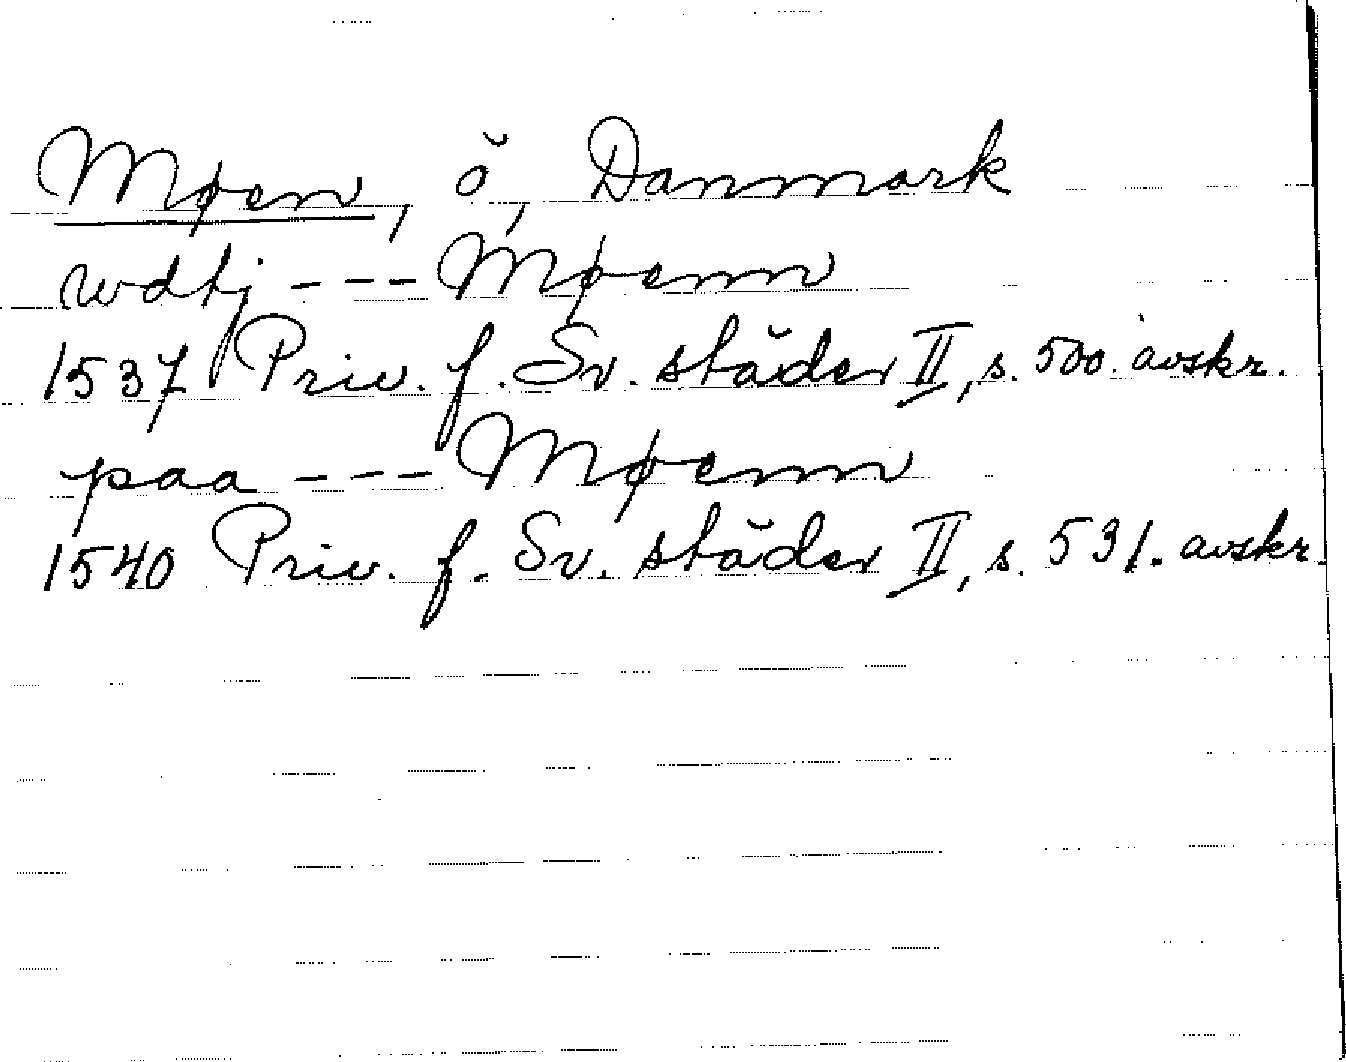 Møen, ö, Danmark
wdtj --- Møenn
1537 Priv. f. Sv. städer II, s. 500. avskr.
paa --- Møenn
1540 Priv. f. Sv. städer II, s. 531. avskr.